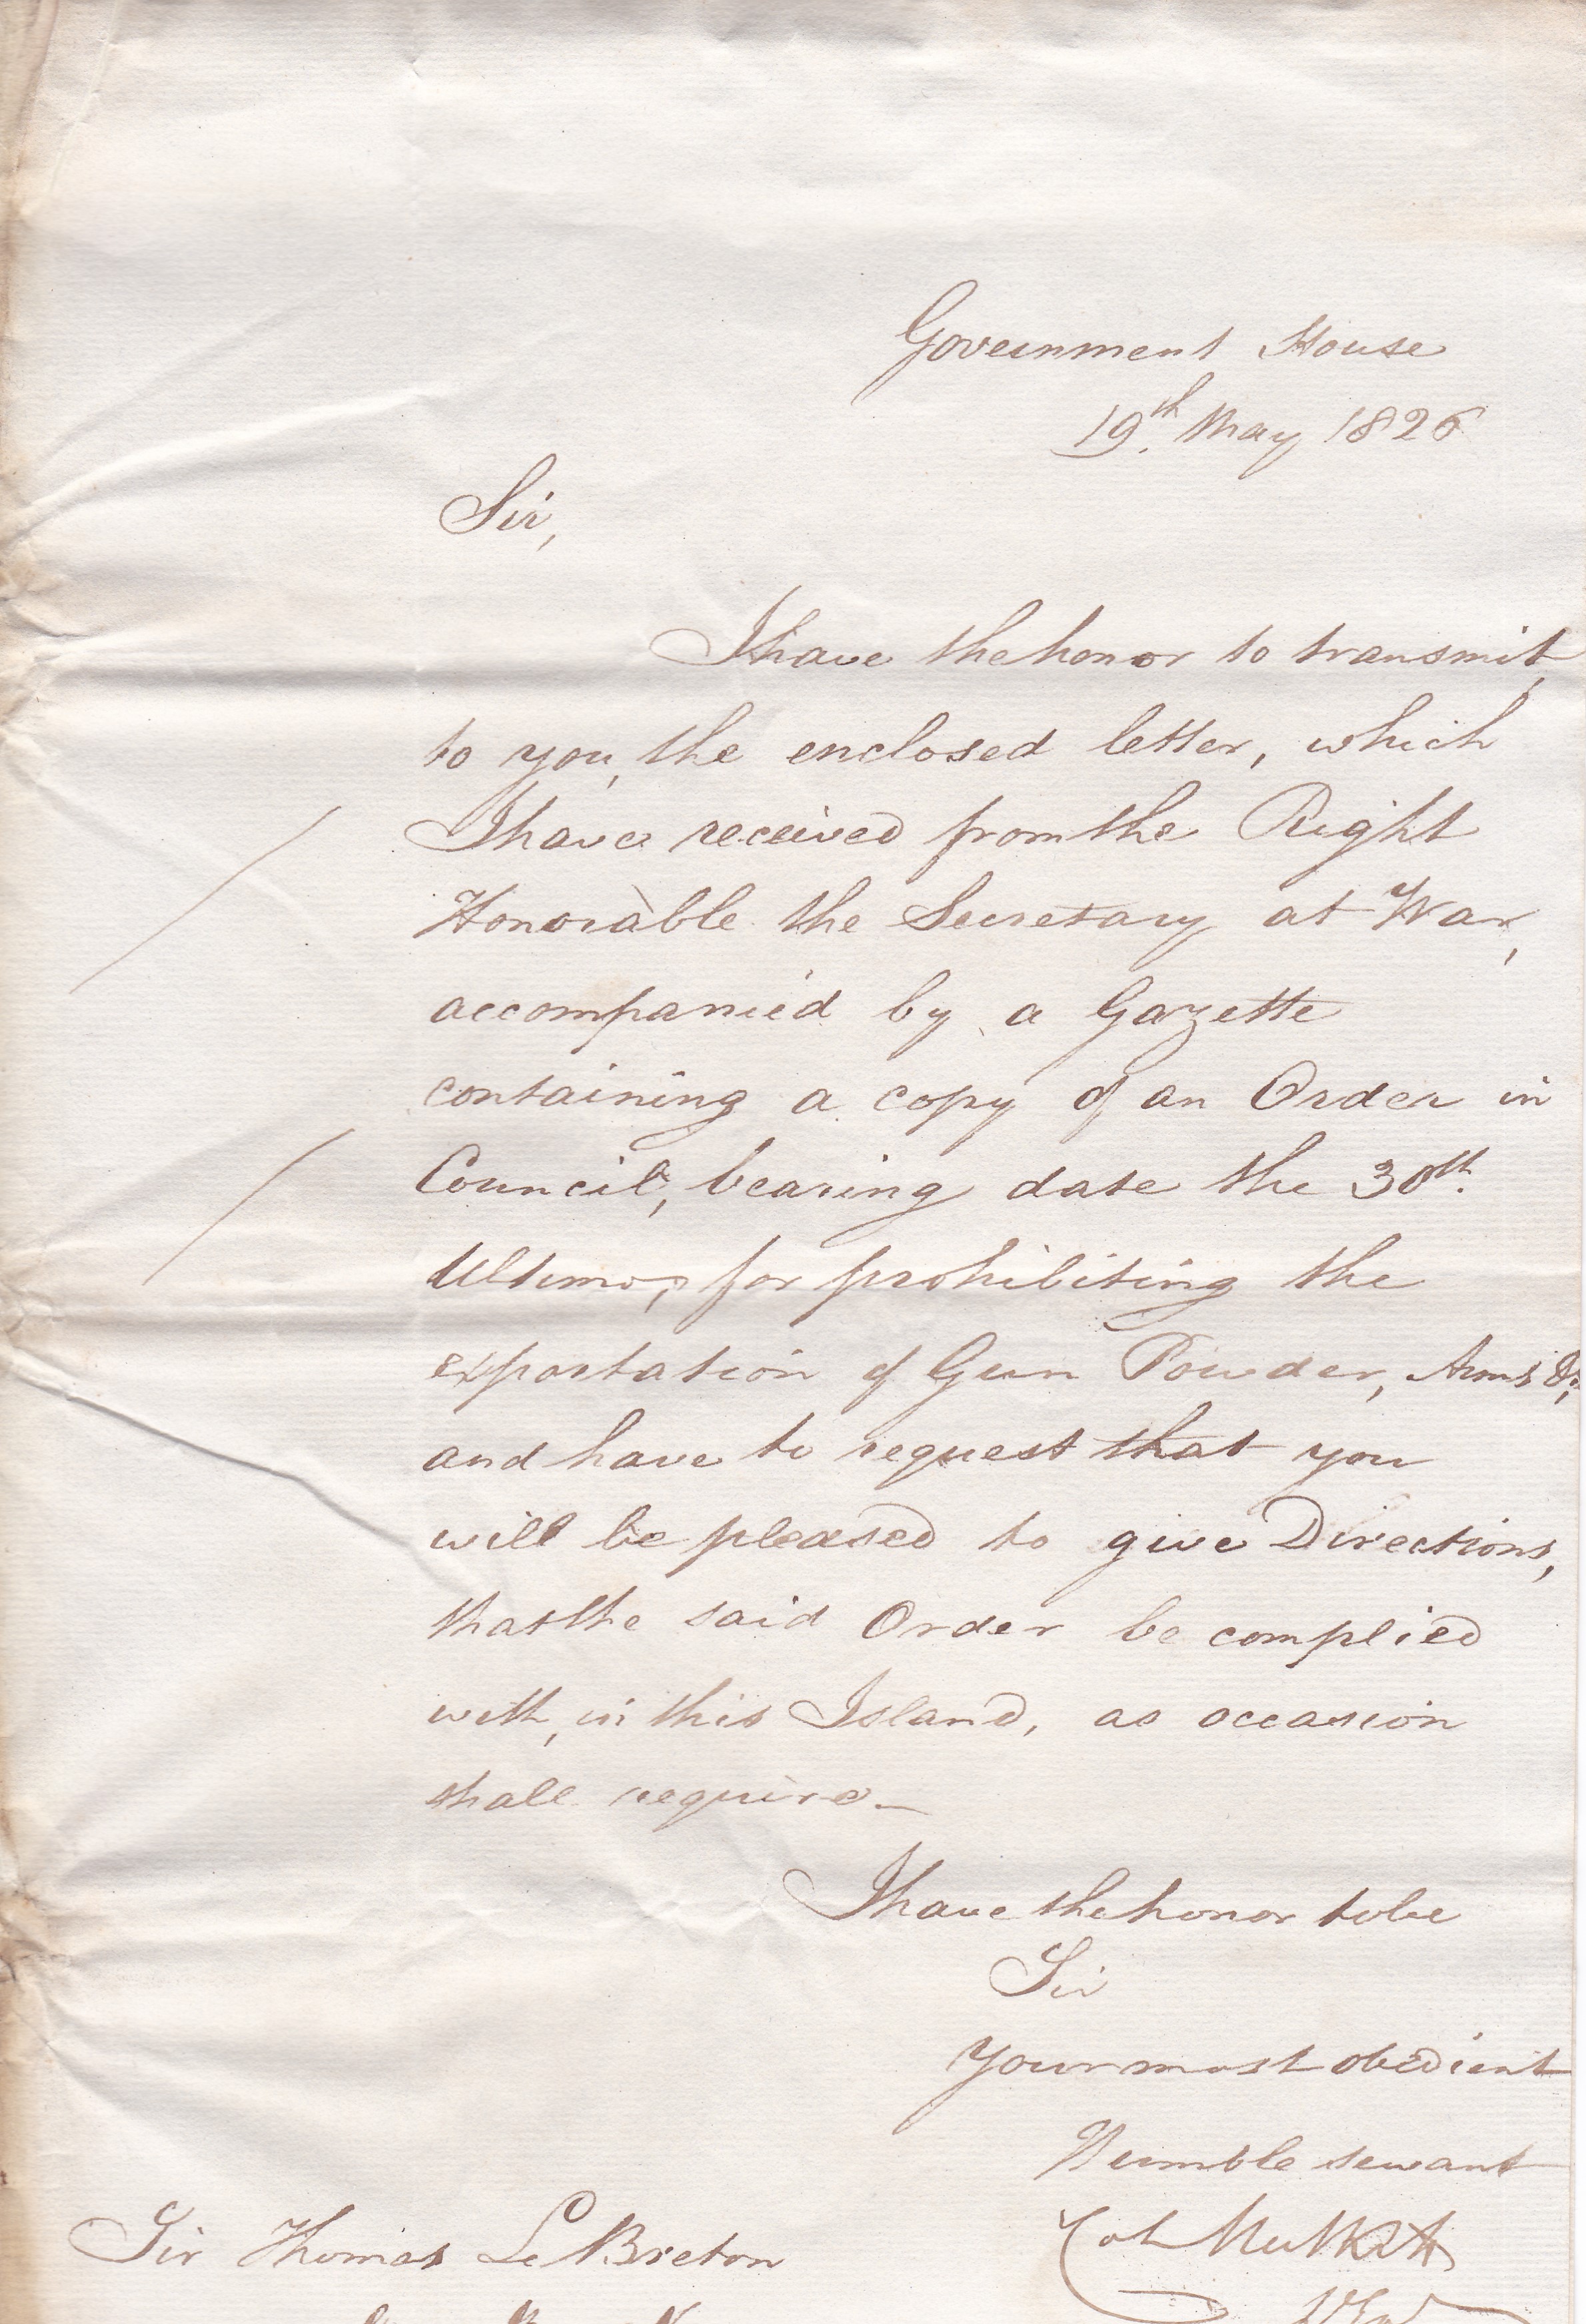 Government House
19th. May 1826
Sir,
I have the honor to transmit,
to you, the enclosed letter, which
I have received from the Right
Honorable the Secretary at War,
accompanied by a Gazette
containing a copy of an Order in
Council, bearing date the 30th.
Ultimo, for prohibiting the
exportation of Gun Powder, Arms &c,
and have to request that you
will be pleased to give Directions,
that the said Order be complied
with, in this Island, as occasion
shall require_
I have the honor to be
Sir
Your most obedient
Humble servant
Sir Thomas Le Breton